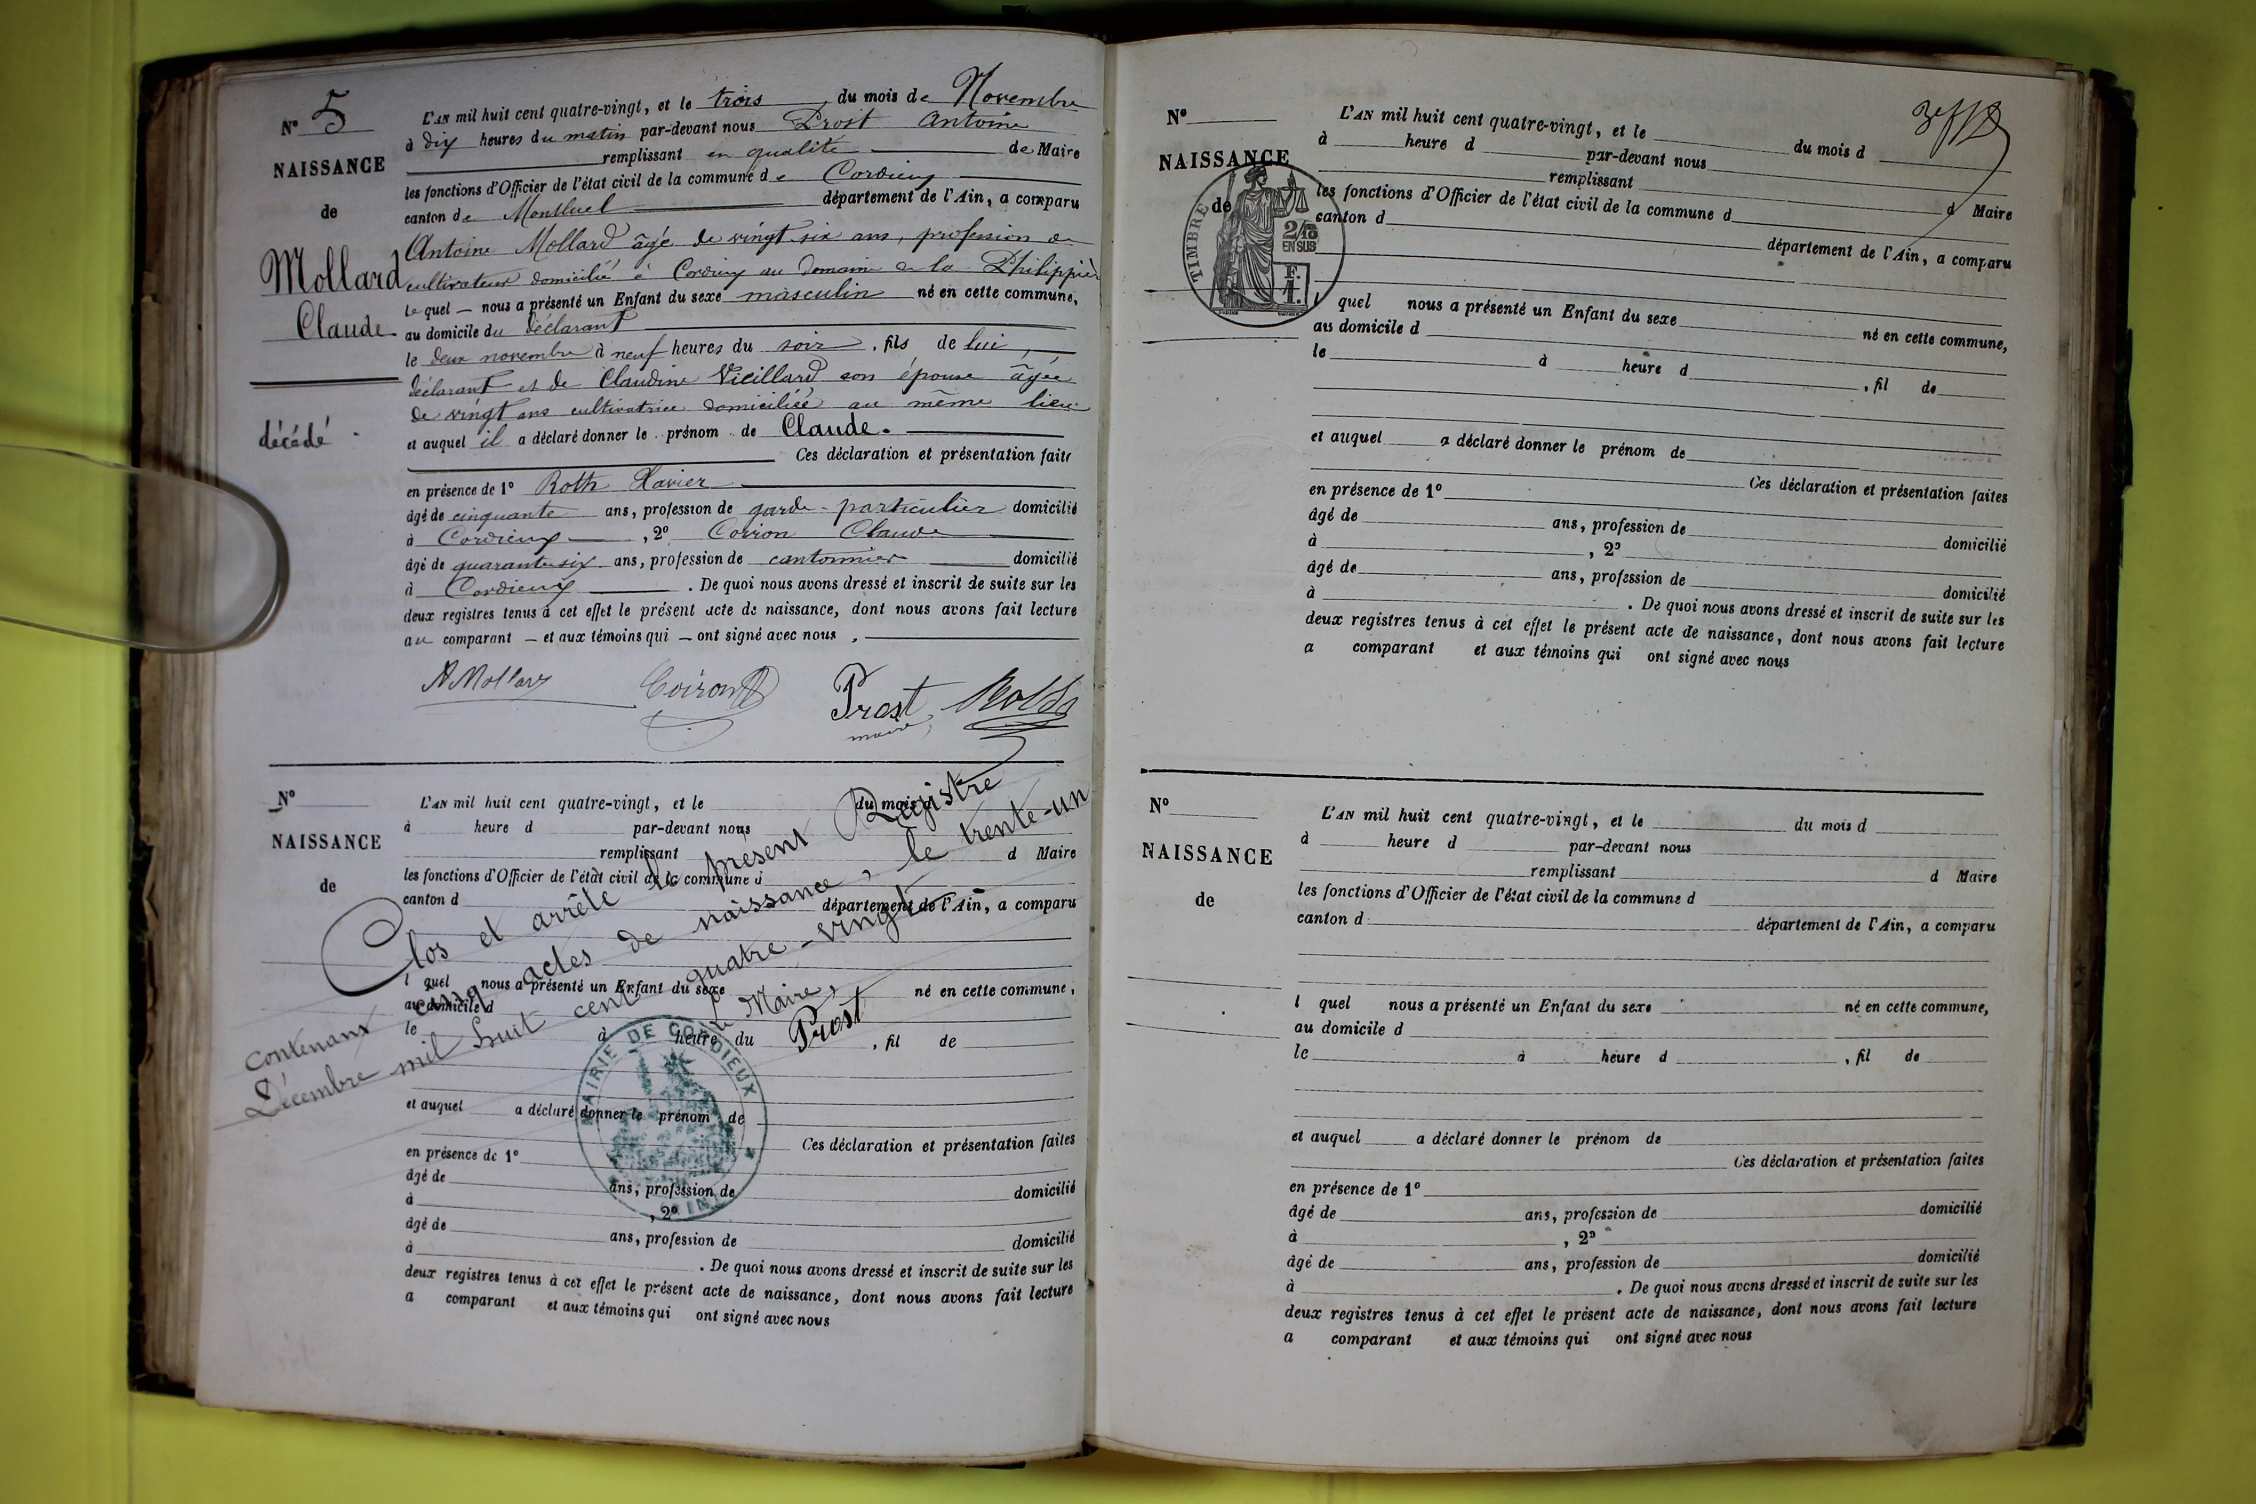 N° 5
NAISSANCE
de
Mollard
Claude
décédé
L'AN mil huit cent quatre-vingt, et le trois du mois de Novembre
à dix heures du matin par-devant nous Prost Antoine
remplissant en qualité de Maire
les fonctions d'Officier de l'état civil de la commune de Cordieux
canton de Montluel département de l'Ain, a comparu
Antoine Mollard âgé de vingt six ans, profession de
cultivateur domicilié à Cordieux au domaine de la Philippière
lequel nous a présenté un Enfant du sexe masculin né en cette commune,
au domicile du déclarant
le deux novembre à neuf heures du soir, fils de lui,
déclarant et de Claudine Vieillard son épouse âgée
de vingt ans cultivatrice domiciliée au même lieu
et auquel il a déclaré donner le prénom de Claude.
Ces déclaration et présentation faite
en présence de 1° Roth Xavier
âgé de cinquante ans, profession de garde-particulier domicilié
à Cordieux, 2° Coiron Claude
âgé de quarante six ans, profession de cantonnier domicilié
à Cordieux. De quoi nous avons dressé et inscrit de suite sur les
deux registres tenus à cet effet le présent acte de naissance, dont nous avons fait lecture
au comparant et aux témoins qui ont signé avec nous.
A Mollard Coiron Prost Roth
maire
N°
NAISSANCE
de
L'AN mil huit cent quatre-vingt, et le du mois d
à heure d par-devant nous
remplissant d Maire
les fonctions d'Officier de l'état civil de la commune d
canton d département de l'Ain, a comparu
l quel nous a présenté un Enfant du sexe né en cette commune,
au domicile d
le à heure du , fil de
et auquel a déclaré donner le prénom de
Ces déclaration et présentation faites
en présence de 1°
âgé de ans, profession de domicilié
à , 2°
âgé de ans, profession de domicilié
à . De quoi nous avons dressé et inscrit de suite sur les
deux registres tenus à cet effet le présent acte de naissance, dont nous avons fait lecture
a comparant et aux témoins qui ont signé avec nous
Clos et arrêté le présent Registre
contenant cinq actes de naissance, le trente-un
Décembre mil huit cent quatre-vingt
Le Maire,
Prost
MAIRIE DE CORDIEUX
AIN
N°
NAISSANCE
de
TIMBRE
2/10
EN SUS
F.
1.
L'AN mil huit cent quatre-vingt, et le du mois d
à heure d par-devant nous
remplissant d Maire
les fonctions d'Officier de l'état civil de la commune d
canton d département de l'Ain, a comparu
l quel nous a présenté un Enfant du sexe né en cette commune,
au domicile d
le à heure d , fil de
et auquel a déclaré donner le prénom de
Ces déclaration et présentation faites
en présence de 1°
âgé de ans, profession de domicilié
à , 2°
âgé de ans, profession de domicilié
à . De quoi nous avons dressé et inscrit de suite sur les
deux registres tenus à cet effet le présent acte de naissance, dont nous avons fait lecture
a comparant et aux témoins qui ont signé avec nous
N°
NAISSANCE
de
L'AN mil huit cent quatre-vingt, et le du mois d
à heure d par-devant nous
remplissant d Maire
les fonctions d'Officier de l'état civil de la commune d
canton d département de l'Ain, a comparu
l quel nous a présenté un Enfant du sexe né en cette commune,
au domicile d
le à heure d , fil de
et auquel a déclaré donner le prénom de
Ces déclaration et présentation faites
en présence de 1°
âgé de ans, profession de domicilié
à , 2°
âgé de ans, profession de domicilié
à . De quoi nous avons dressé et inscrit de suite sur les
deux registres tenus à cet effet le présent acte de naissance, dont nous avons fait lecture
a comparant et aux témoins qui ont signé avec nous